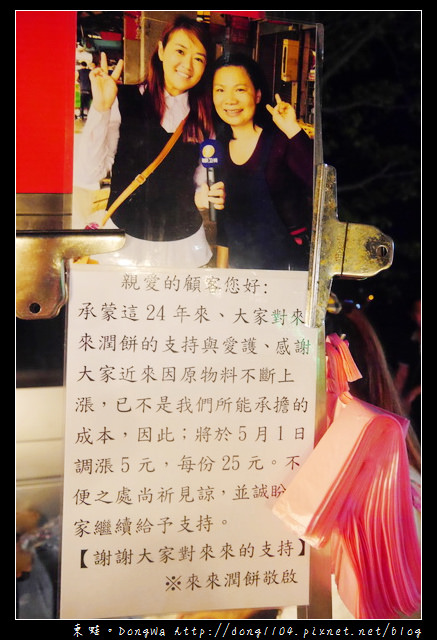 親愛的顧客您好:
承蒙這24年來、大家對來
來潤餅的支持與愛護、感謝
大家近來因原物料不斷上
漲,已不是我們所能承擔的
成本,因此;將於5月1日
調漲5元,每份25元。不
便之處尚祈見諒,並誠盼
家繼續給予支持。
【謝謝大家對來來的支持】
※來來潤餅敬啟
東蛙。DongWa http://dong1104.pixnet.net/blog